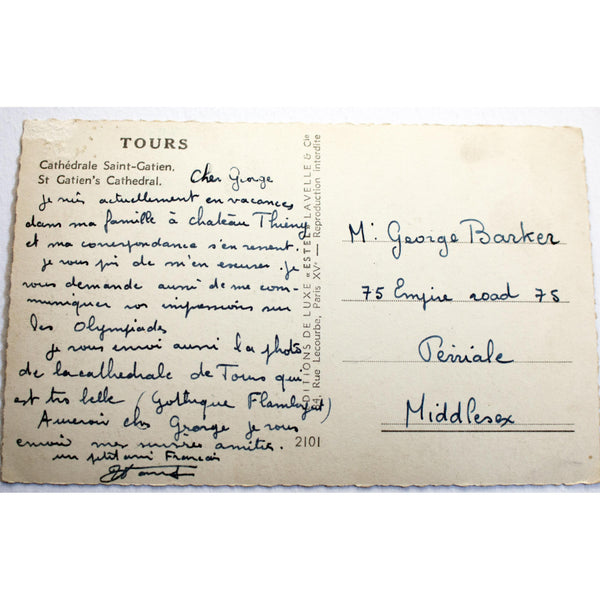 TOURS
Cathédrale Saint-Gatien.
St Gatien's Cathedral.
Cher George
je suis actuellement en vacances
dans ma famille à chateau Thierry
et ma correspondance s'en ressent.
je vous pri de m'en excuser. je
vous demande aussi de me com-
muniquer vos impressions sur
les Olympiades
je vous envoi aussi la photo
de la cathedrale de Tours qui
est très belle (Gothique Flamboyant)
Aurevoir cher George je vous
envoi mes sincères amitiés.
un petit ami Francais
EDITIONS DE LUXE «ESTEL» LAVELLE & Cie
Rue Lecourbe, Paris XVe — Reproduction interdite
2101
Mr. George Barker
75 Empire road 75
Perivale
Middlesex